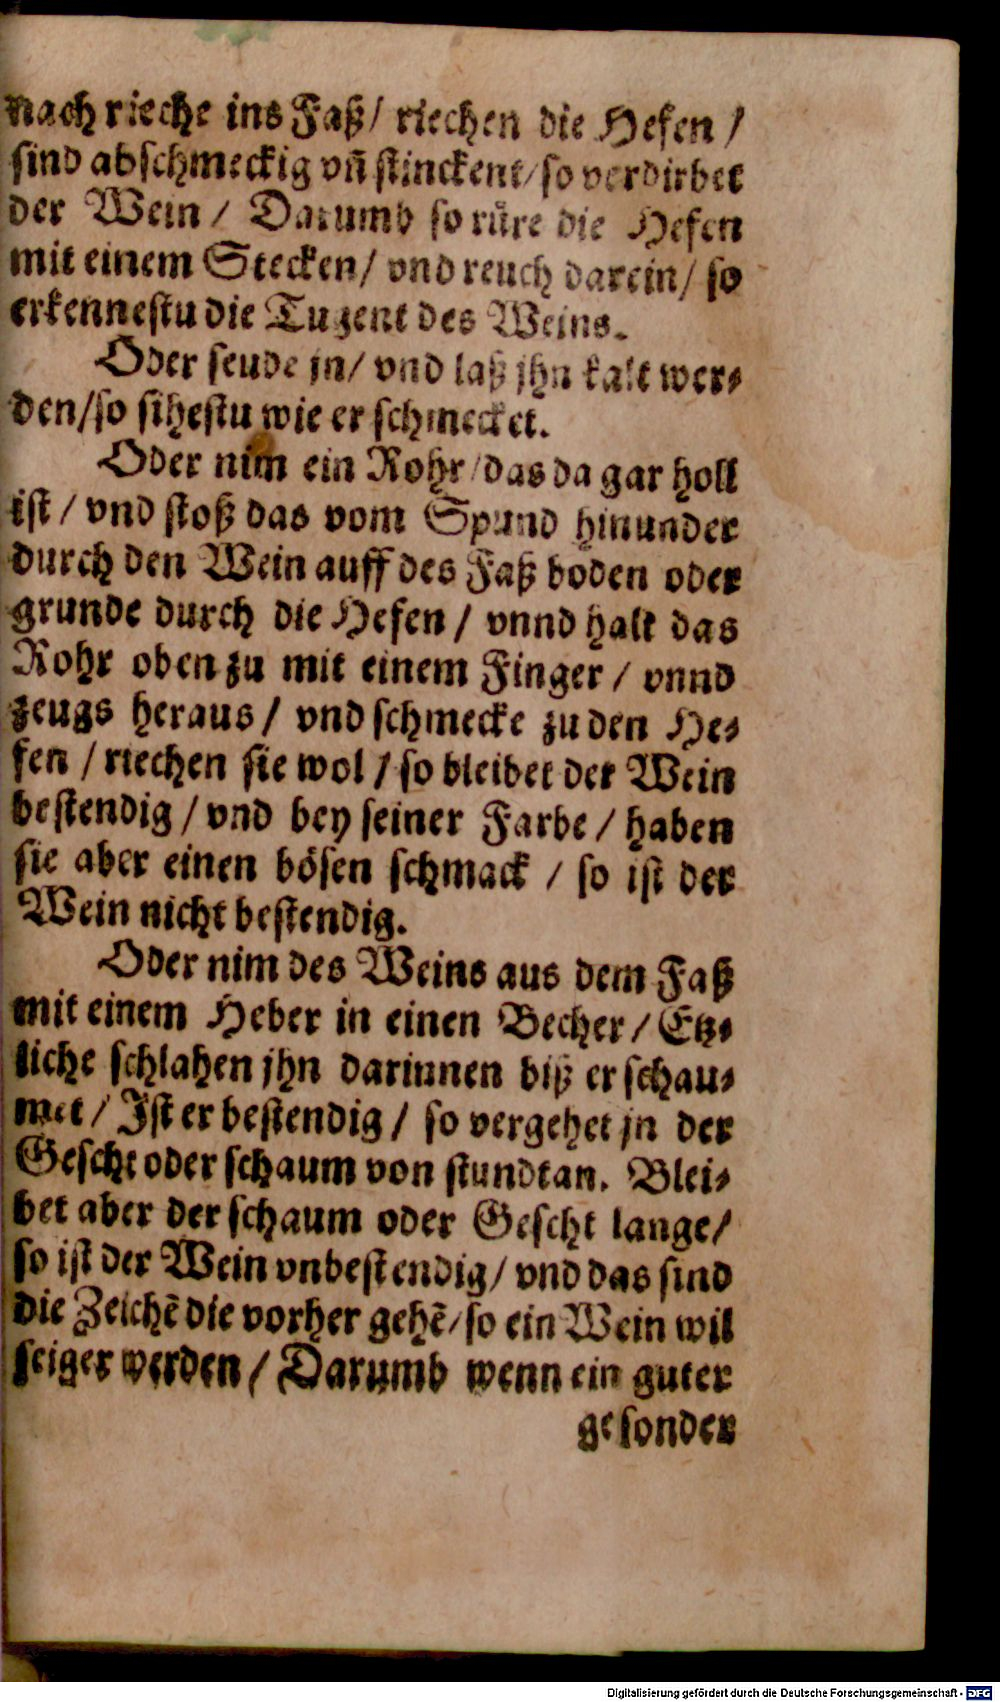 nach rieche ins Faß / riechen die Hefen /
sind abschmeckig vñ stinckent / so verdirbet
der Wein / Darumb so rüre die Hefen
mit einem Stecken / vnd reuch darein / so
erkennestu die Tugent des Weins.
Oder seude jn / vnd laß jhn kalt wer⸗
den / so sihestu wie er schmecket.
Oder nim ein Rohr / das da gar holl
ist / vnd stoß das vom Spund hinunder
durch den Wein auff des Faß boden oder
grunde durch die Hefen / vnnd halt das
Rohr oben zu mit einem Finger / vnnd
zeugs heraus / vnd schmecke zu den He⸗
fen / riechen sie wol / so bleibet der Wein
bestendig / vnd bey seiner Farbe / haben
sie aber einen bösen schmack / so ist der
Wein nicht bestendig.
Oder nim des Weins aus dem Faß
mit einem Heber in einen Becher / Etz⸗
liche schlahen jhn darinnen biß er schau⸗
met / Ist er bestendig / so vergehet jn der
Gescht oder schaum von stundtan. Blei⸗
bet aber der schaum oder Gescht lange /
so ist der Wein vnbestendig / vnd das sind
die Zeichẽ die vorher gehẽ / so ein Wein wil
seiger werden / Darumb wenn ein guter
gesonder
Digitalisierung gefördert durch die Deutsche Forschungsgemeinschaft - DFG